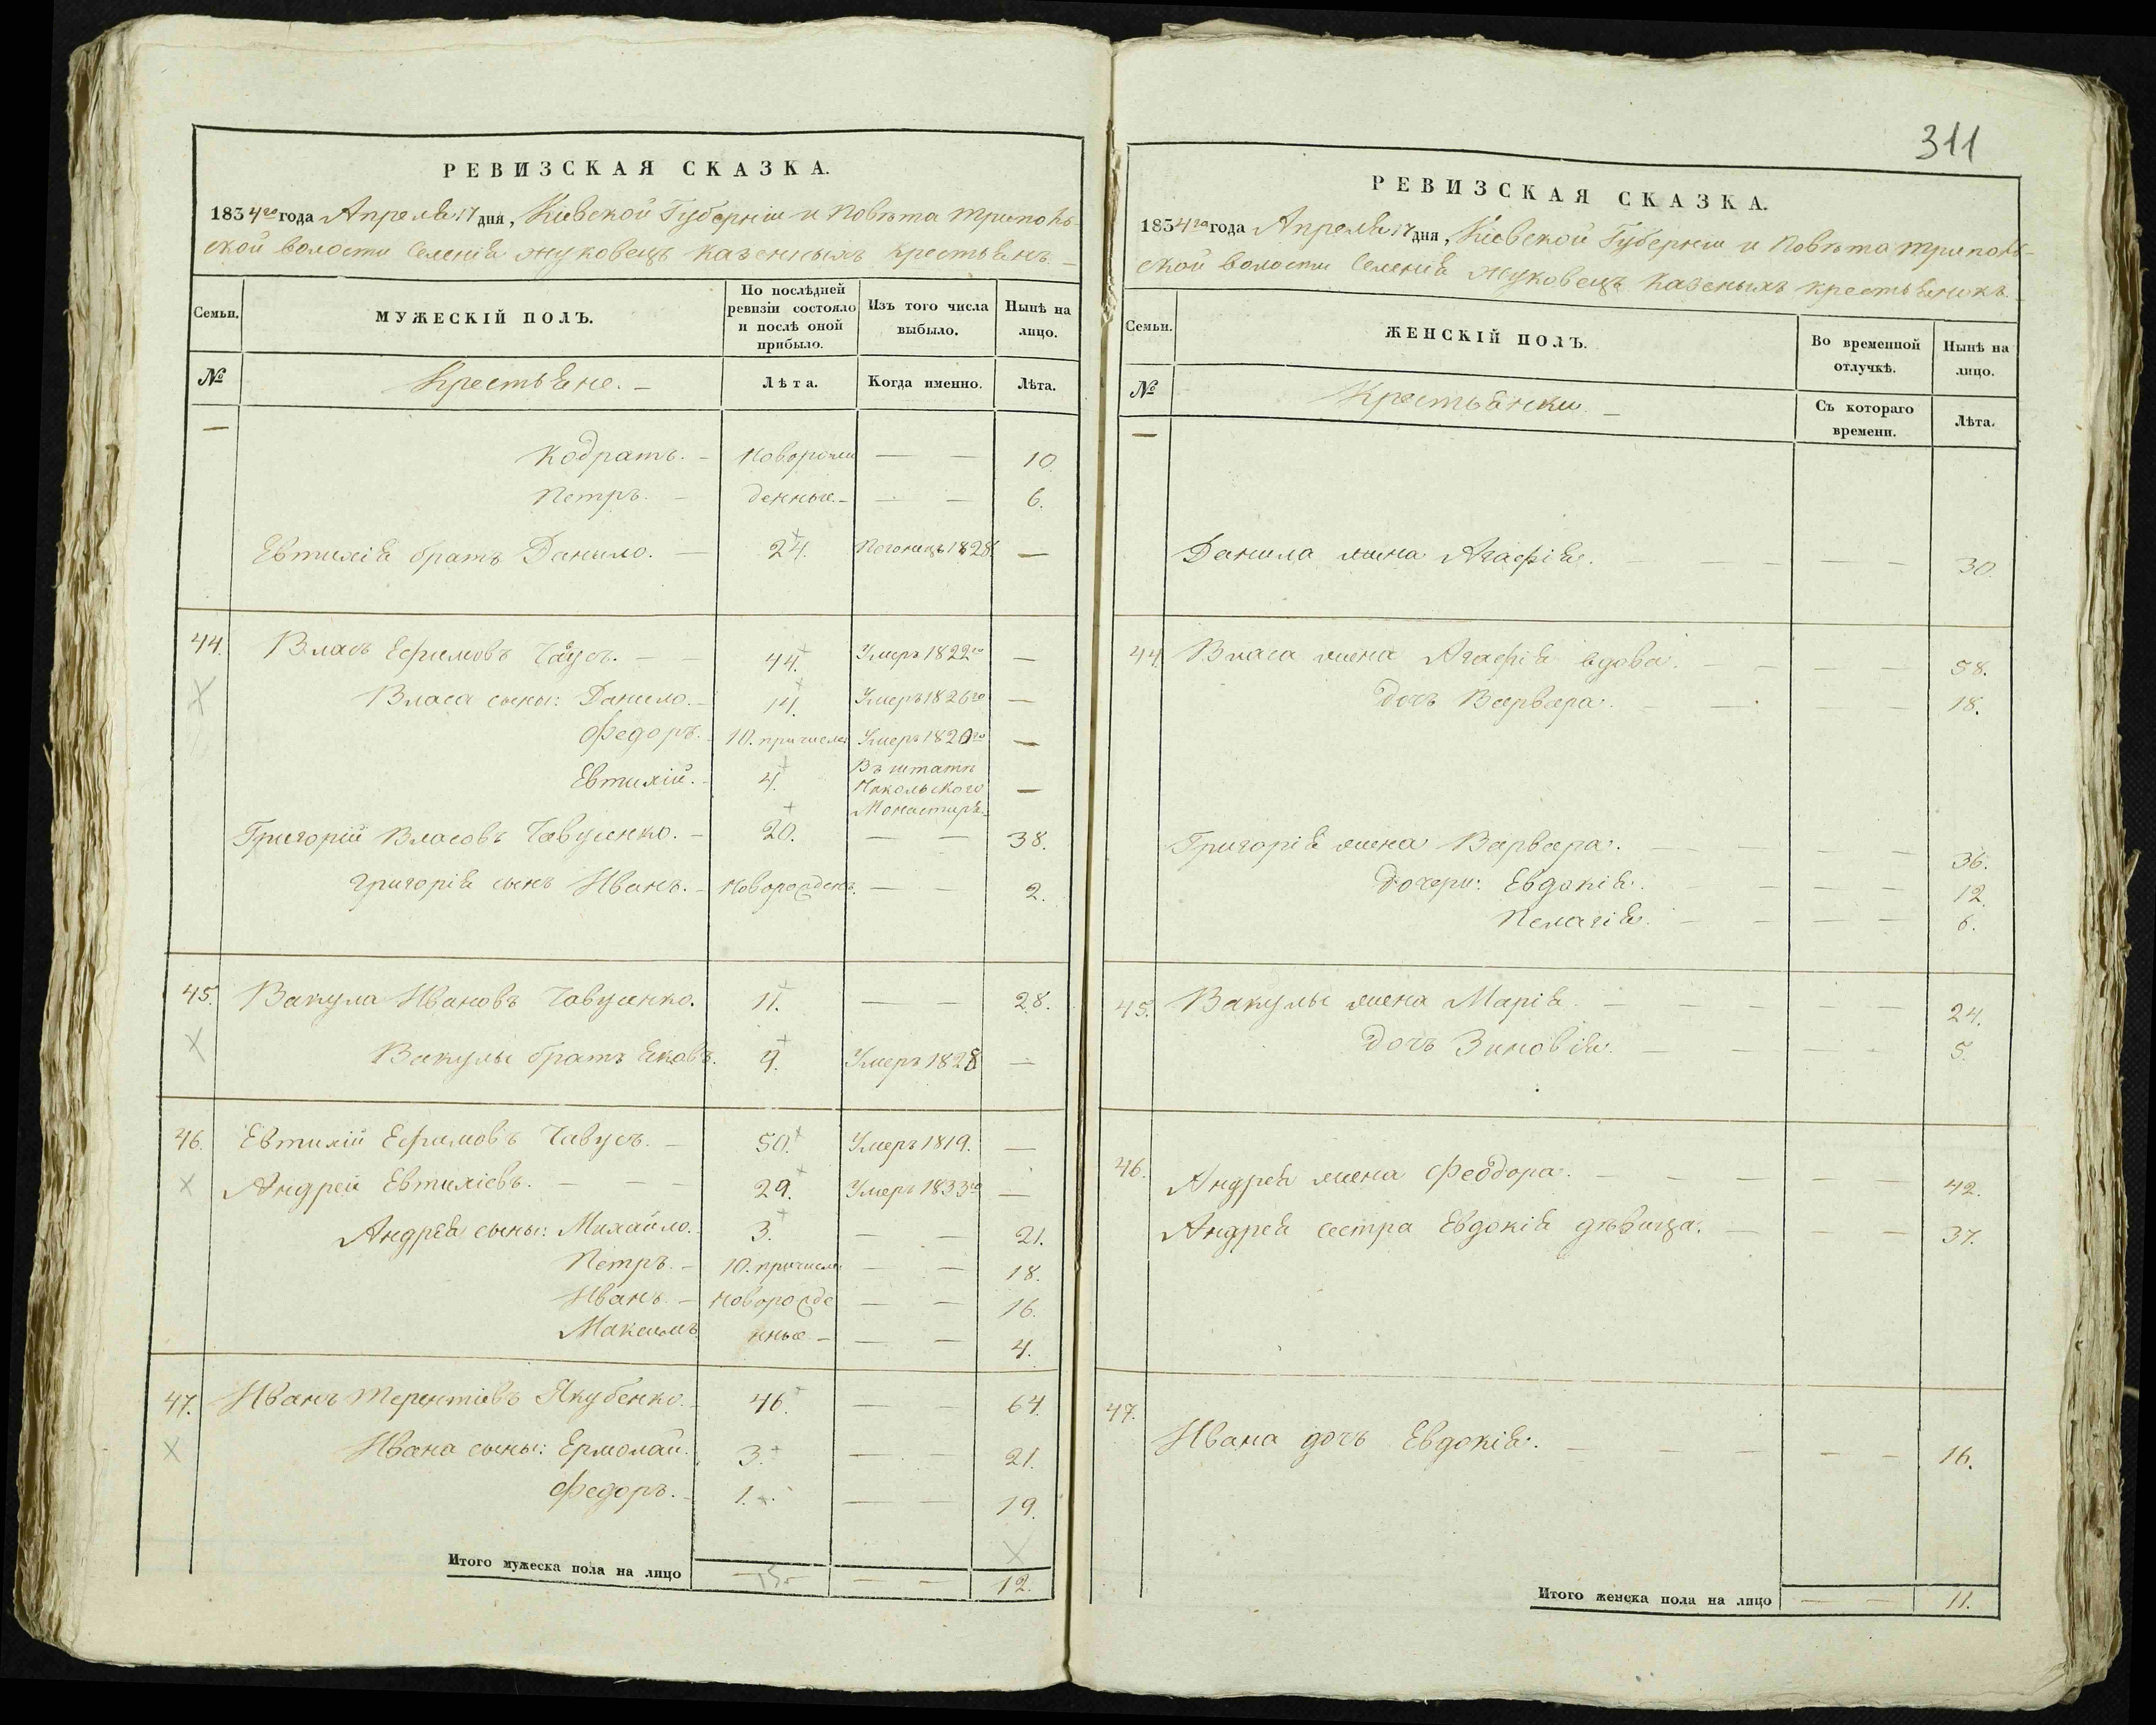 311
РЕВИЗСКАЯ СКАЗКА.
1834го года Апреля 17 дня, Кіевской Губерніи и Повѣта Триполь-
ской волости Селенія Жуковецъ Казенныхъ Крестьянъ
Семьи.
МУЖЕСКІЙ ПОЛЪ.
По послѣдней ревизіи состояло и послѣ оной прибыло.
Изъ того числа выбыло.
Нынѣ на лицо.
№
Крестьяне.
Лѣта.
Когда именно.
Лѣта.
Кодратъ. Новорожд 10.
Петръ. денные. 6.
Евтихія братъ Данило. 24. 1828 —
44. Власъ Ефимовъ Чаусъ. 44. Умеръ 1822го —
Власа сыны: Данило. 14. Умеръ 1826го —
Федоръ. 10. причислен Умеръ 1820го —
Евтихій. 4. Въ штатѣ Никольского Монастыря —
Григорій Власовъ Чавусенко. 20. — — 38.
Григорія сынъ Иванъ. Новорожден. — — 2.
45. Вакула Ивановъ Чавусенко. 11. — — 28.
Вакулы братъ Яковъ. 9. Умеръ 1828 —
46. Евтихій Ефимовъ Чавусъ. 50. Умеръ 1819. —
Андрей Евтихіевъ. 29. Умеръ 1833го —
Андрея сыны: Михайло. 3. — — 21.
Петръ. 10. причисл. — — 18.
Иванъ. Новорожде — — 16.
Максимъ нные — — 4.
47. Иванъ Терентіевъ Якубенко. 46. — — 64.
Ивана сыны: Ермолай. 3. — — 21.
Федоръ. 1. — — 19.
Итого мужеска пола на лицо — — 12.
РЕВИЗСКАЯ СКАЗКА.
1834го года Апреля 17 дня, Кіевской Губерніи и Повѣта Триполь-
ской волости Селенія Жуковецъ Казеныхъ крестьянокъ.
Семьи.
ЖЕНСКІЙ ПОЛЪ.
Во временной отлучкѣ.
Нынѣ на лицо.
№
Крестьянки
Съ котораго времени.
Лѣта.
Данила жена Агафія. — — 30.
44. Власа жена Агафія вдова. — — 58.
дочь Варвара. — — 18.
Григорія жена Варвара. — — 36.
Дочери: Евдокія. — — 12.
Пелагія. — — 6.
45. Вакулы жена Марія — — 24.
дочь Зиновія. — — 5.
46. Андрея жена Феодора. — — 42.
Андрея сестра Евдокія дѣвица. — — 37.
47. Ивана дочь Евдокія. — — 16.
Итого женска пола на лицо — — 11.